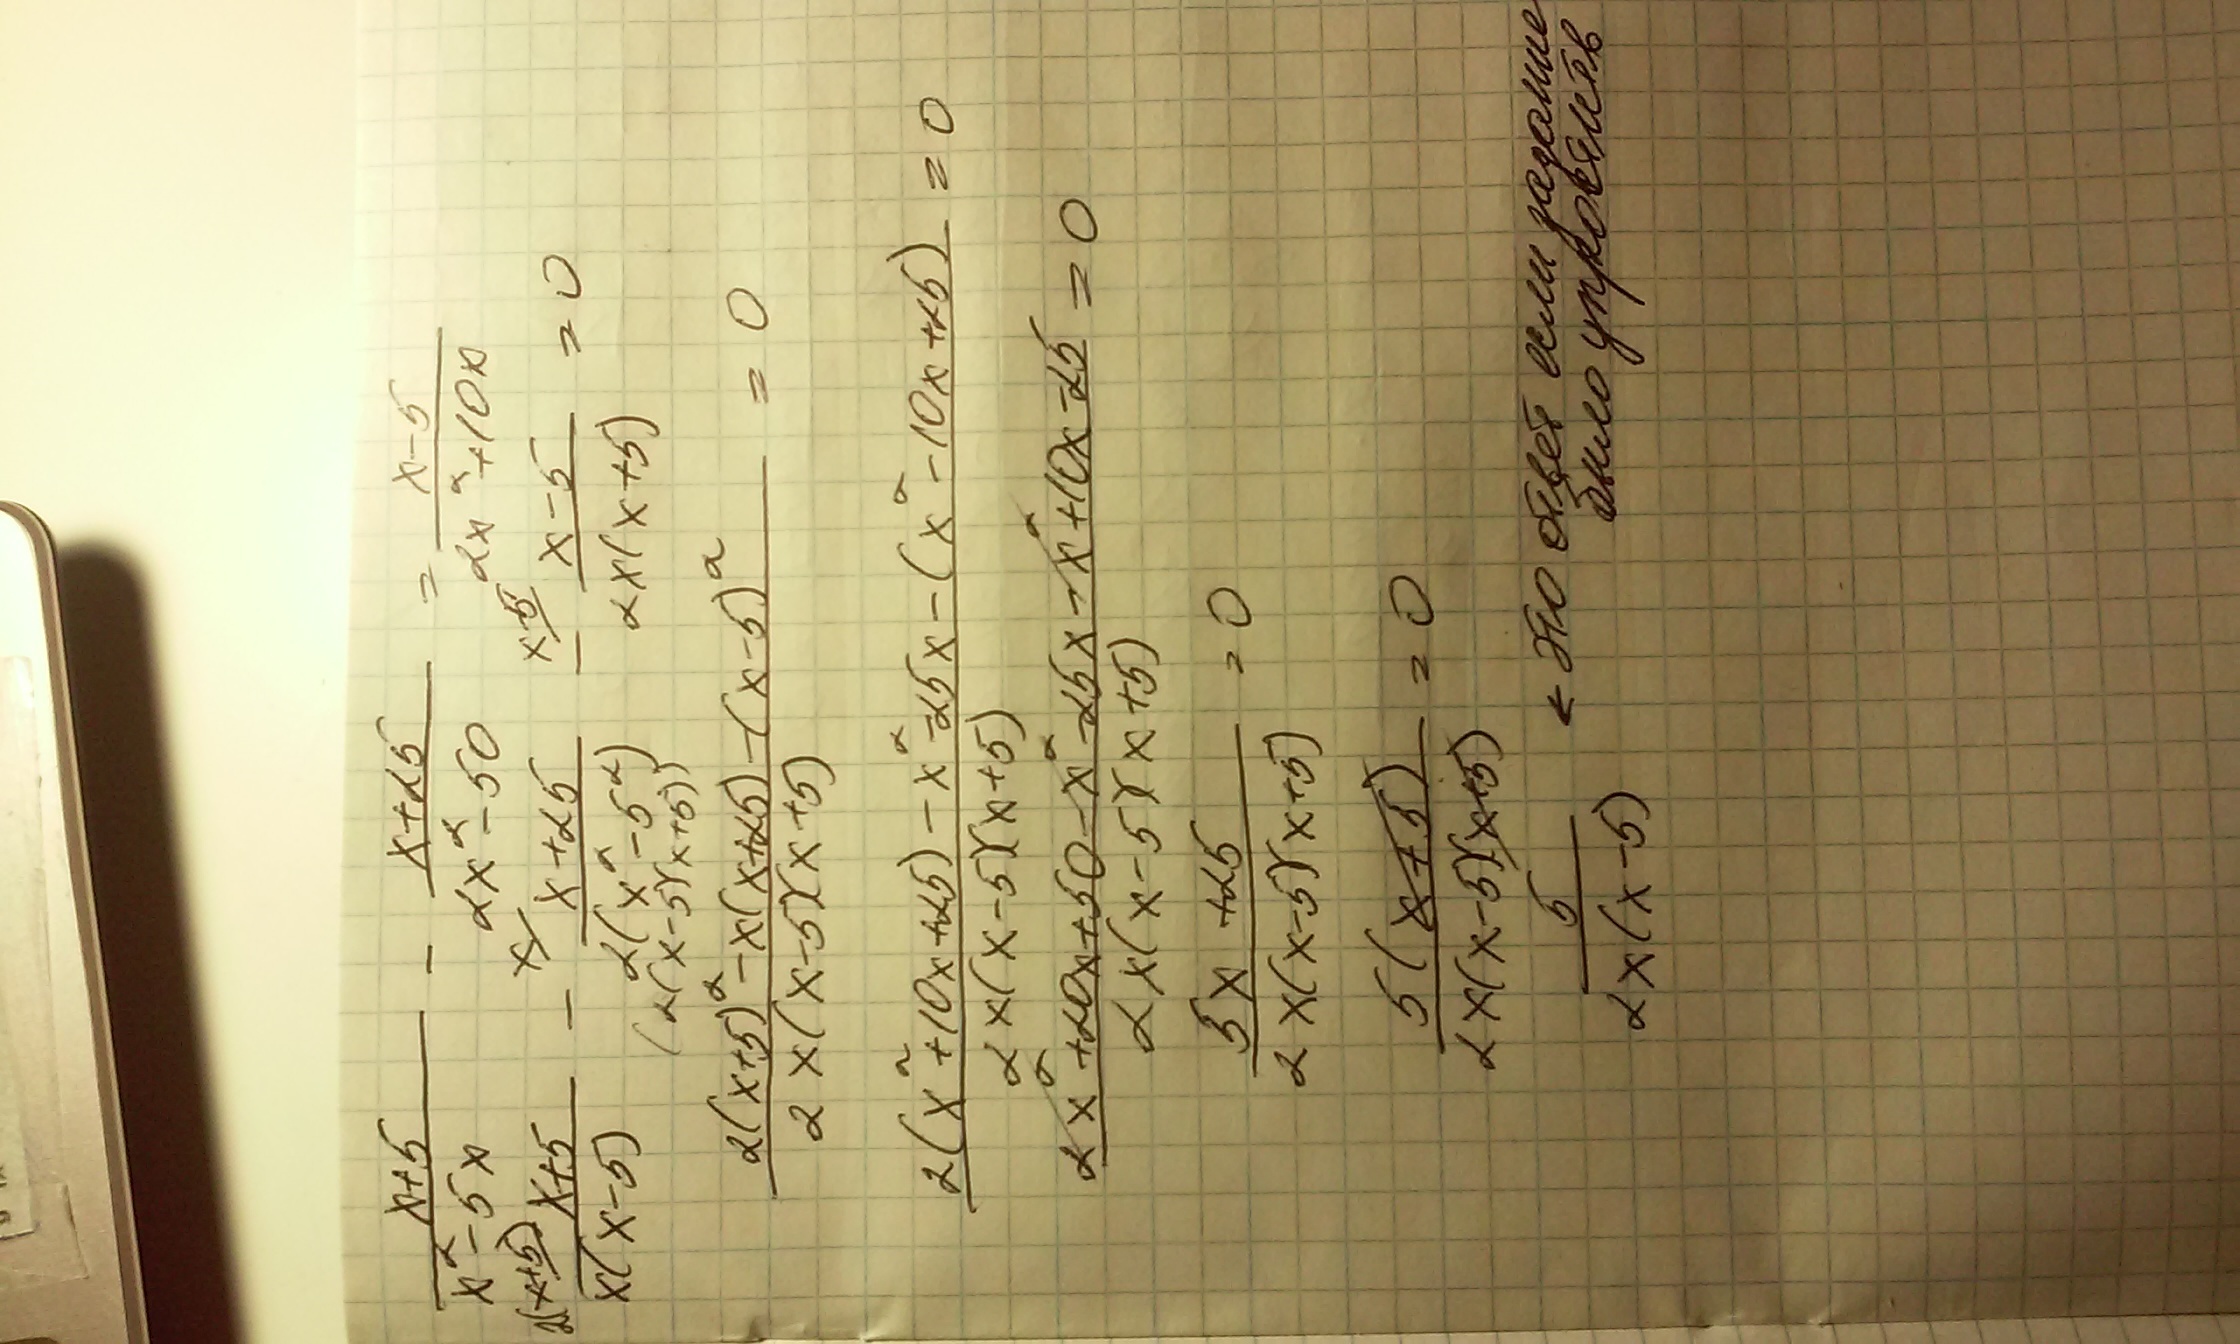 (x+5)/(x²-5x) - (x+25)/(2x²-50) = (x-5)/(2x²+10x)
2(x+5) x x-5
(x+5)/(x(x-5)) - (x+25)/(2(x²-5²)) - (x-5)/(2x(x+5)) = 0
(2(x-5)(x+5))
(2(x+5)²-x(x+25)-(x-5)²)/(2x(x-5)(x+5)) = 0
(2(x²+10x+25)-x²-25x-(x²-10x+25))/(2x(x-5)(x+5)) = 0
(2x²+20x+50-x²-25x-x²+10x-25)/(2x(x-5)(x+5)) = 0
(5x+25)/(2x(x-5)(x+5)) = 0
(5(x+5))/(2x(x-5)(x+5)) = 0
5/(2x(x-5)) ← это ответ если задание
было упростить